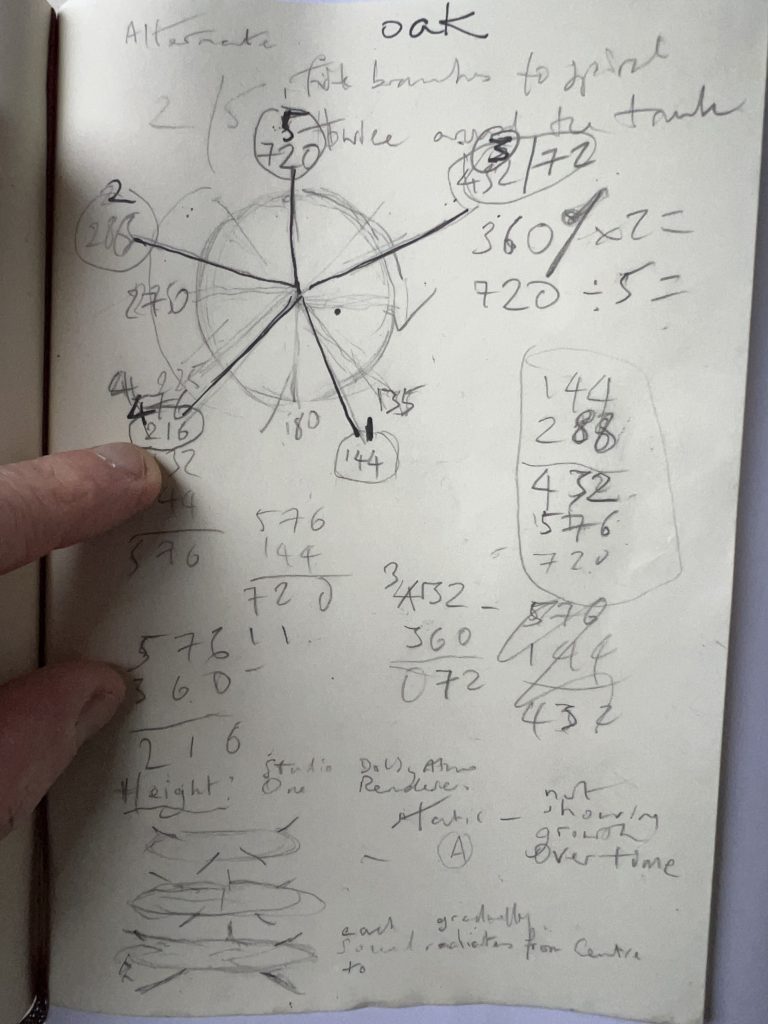 oak
Alternate
2/5 five branches to spiral
twice around the trunk
5
720
3
432/72
2
288
360 x2=
720 ÷5=
2750
4 225
4 576
216
180
135
1
144
144
288
432
576
720
432
144
576
576
144
720
11
432 -
360
072
576
144
432
576 -
360
216
Height: Studio One Dolby Atmos Renderer
static - not showing growth over time
A
each gradually
sound radiates from centre
to